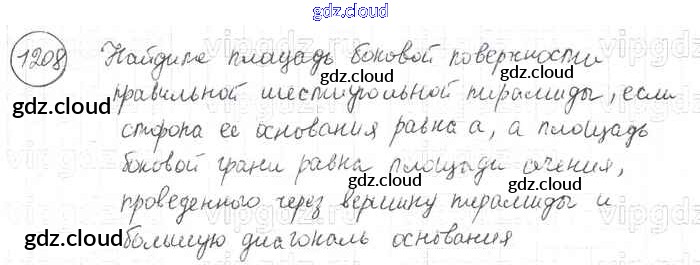 gdz.cloud
1208 Найдите площадь боковой поверхности
gdz.cloud
gdz.cloud
правильной шестиугольной пирамиды, если
gdz.cloud
сторона ее основания равна а, а площадь
gdz.cloud
боковой грани равна площади сечения,
gdz.cloud
gdz.cloud
проведенного через вершину пирамиды и
gdz.cloud
большую диагональ основания
gdz.cloud